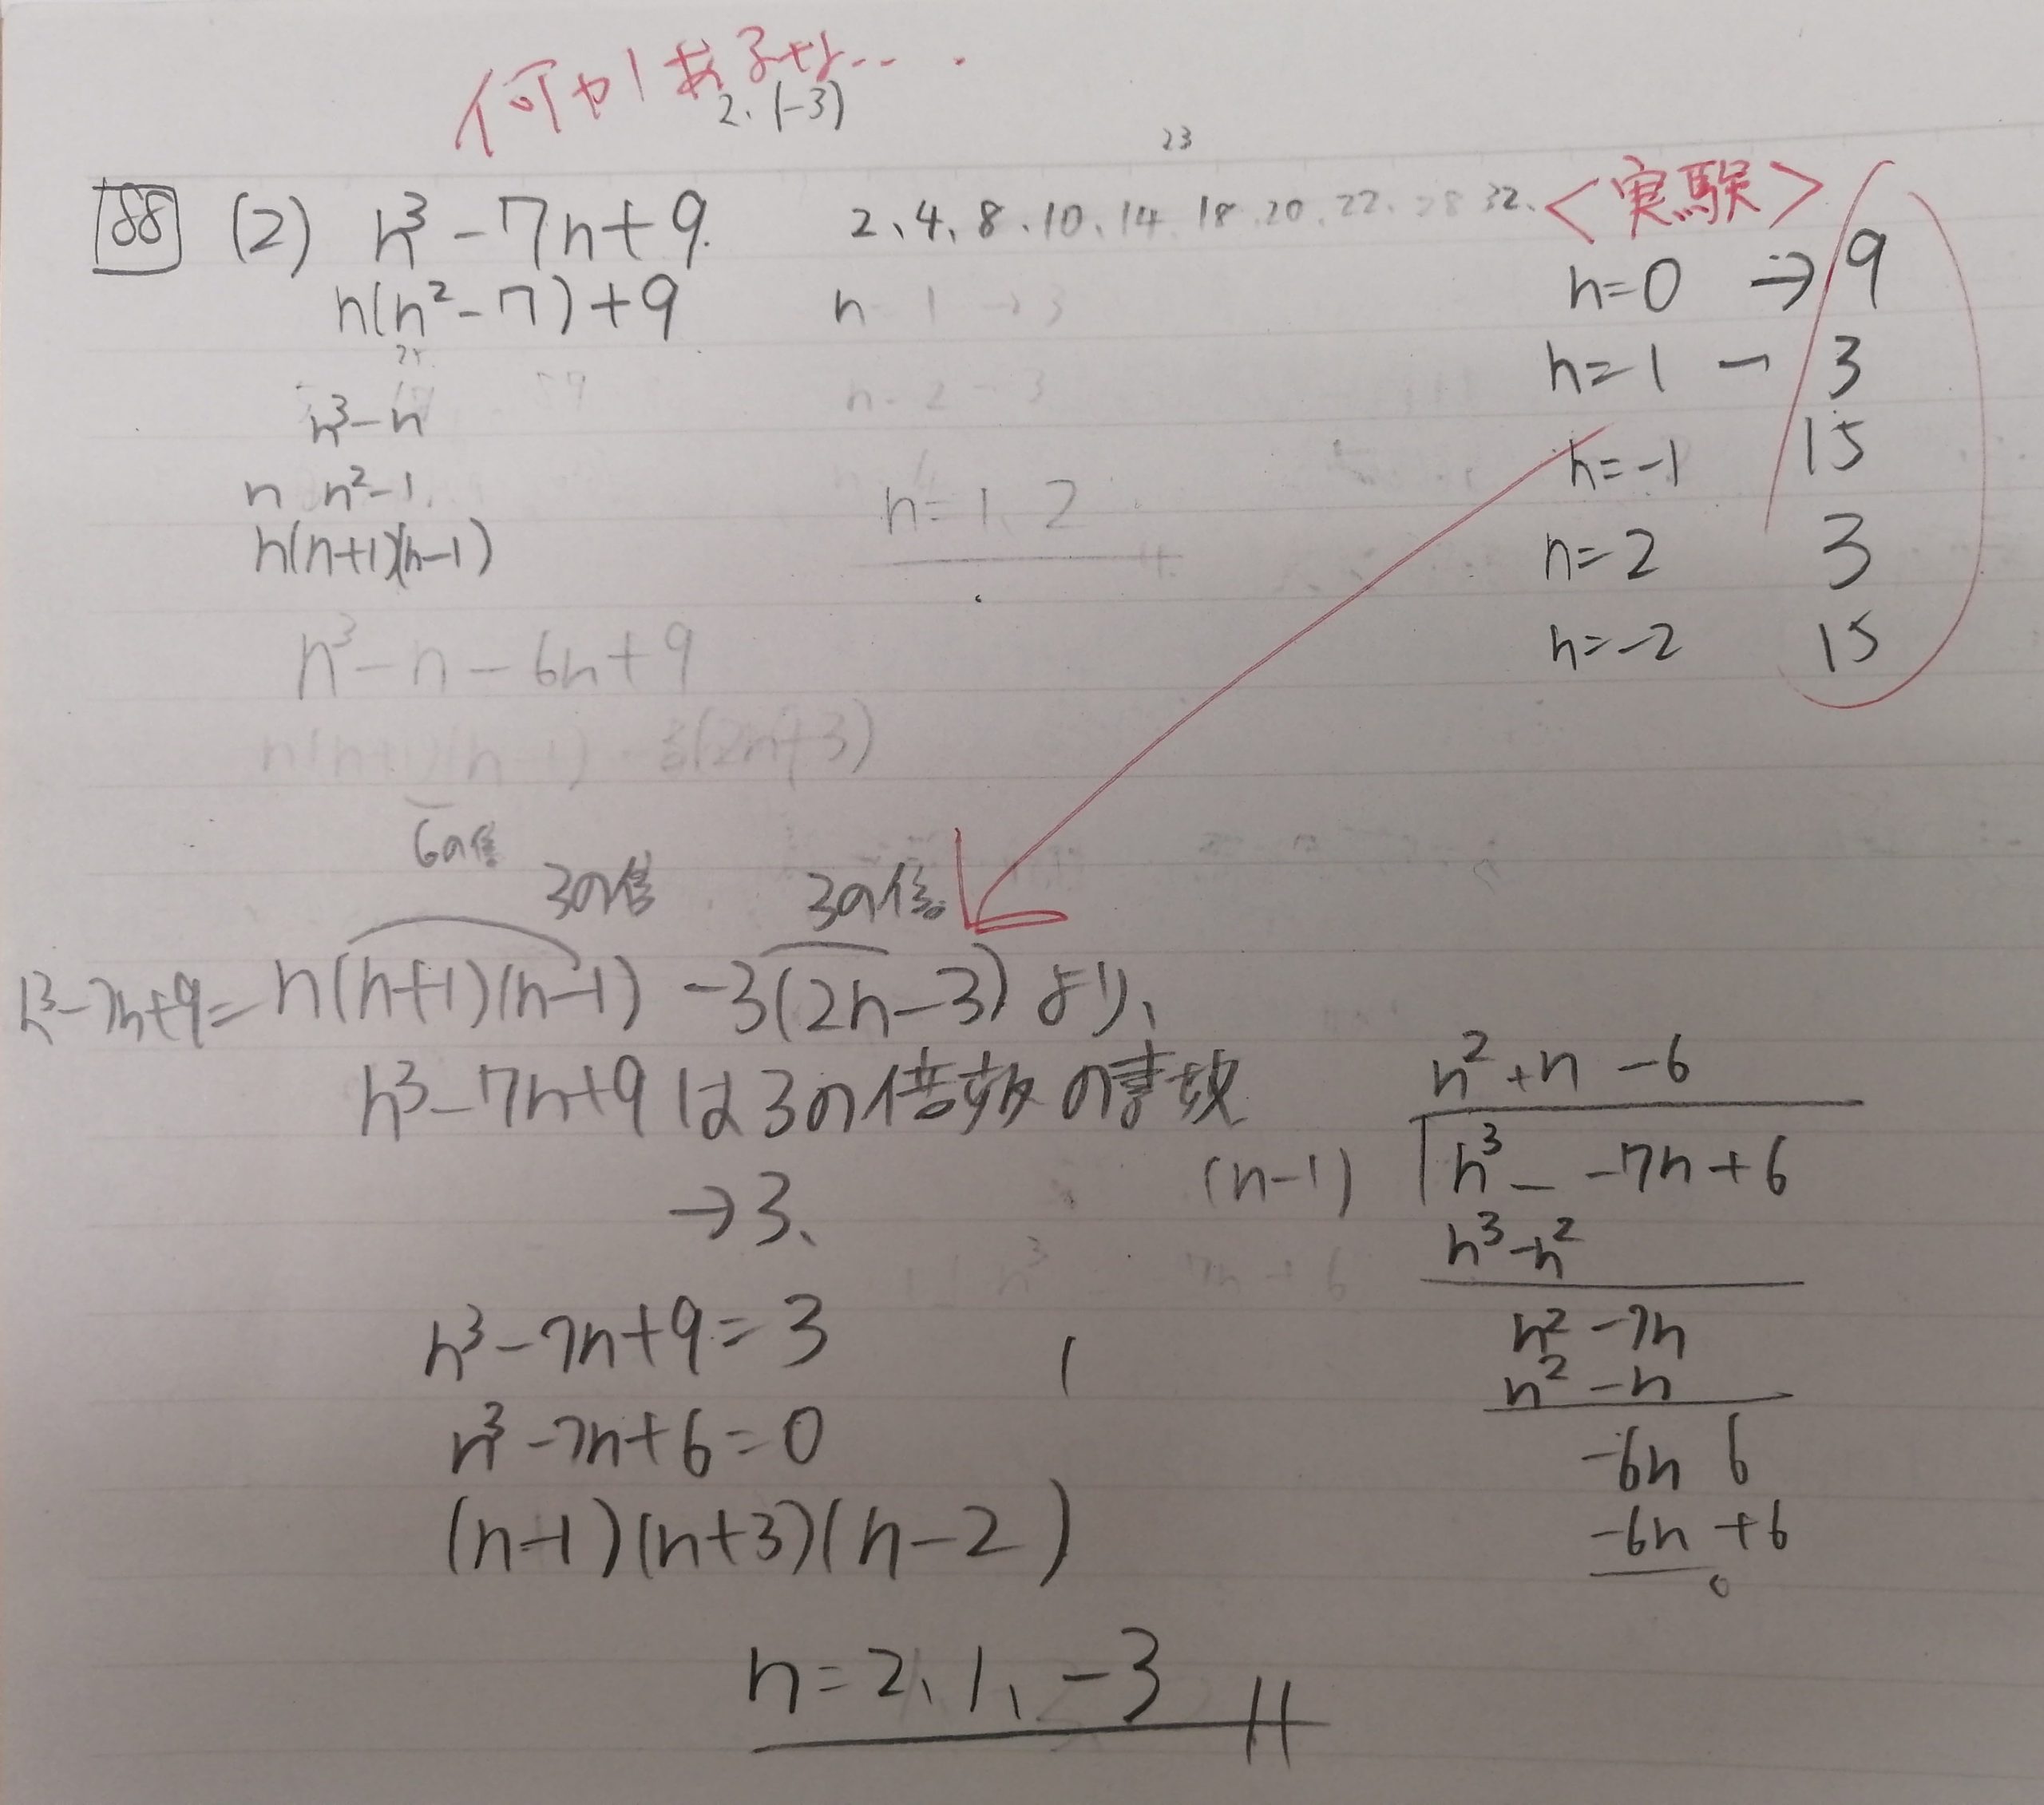 何かあるな...
2、(-3)
23
88 (2) n³-7n+9
2、4、8、10、14 18 20、22、28 32、
n(n²-7)+9
n³-n
n n²-1
n(n+1)(n-1)
n³-n-6n+9
n(n+1)(n-1) -3(2n+3)
6の倍
n 1 →3
n=2-3
n=1、2
<実験>
n=0 →9
n=1 - 3
n=-1 15
n=2 3
n=-2 15
3の倍 3の倍
n³-7n+9=n(n+1)(n-1) -3(2n-3)より、
n³-7n+9は3の倍数の素数
→3、
n³-7n+9=3
n³-7n+6=0
(n-1)(n+3)(n-2)
n=2、1、-3
n²+n-6
(n-1) n³- -7n+6
n³-n²
n²-7n
n²-n
-6n 6
-6n+6
0